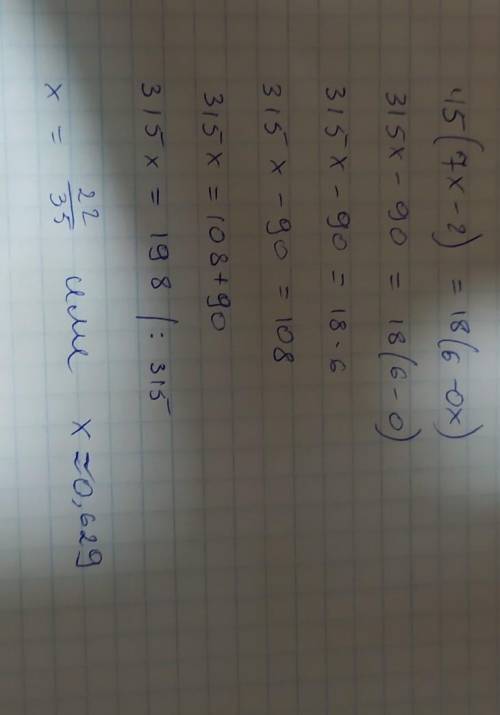 45(7x-2) = 18(6-0x)
315x-90 = 18(6-0)
315x-90 = 18·6
315x-90 = 108
315x = 108+90
315x = 198 /: 315
x = 22/35 или x≈0,629